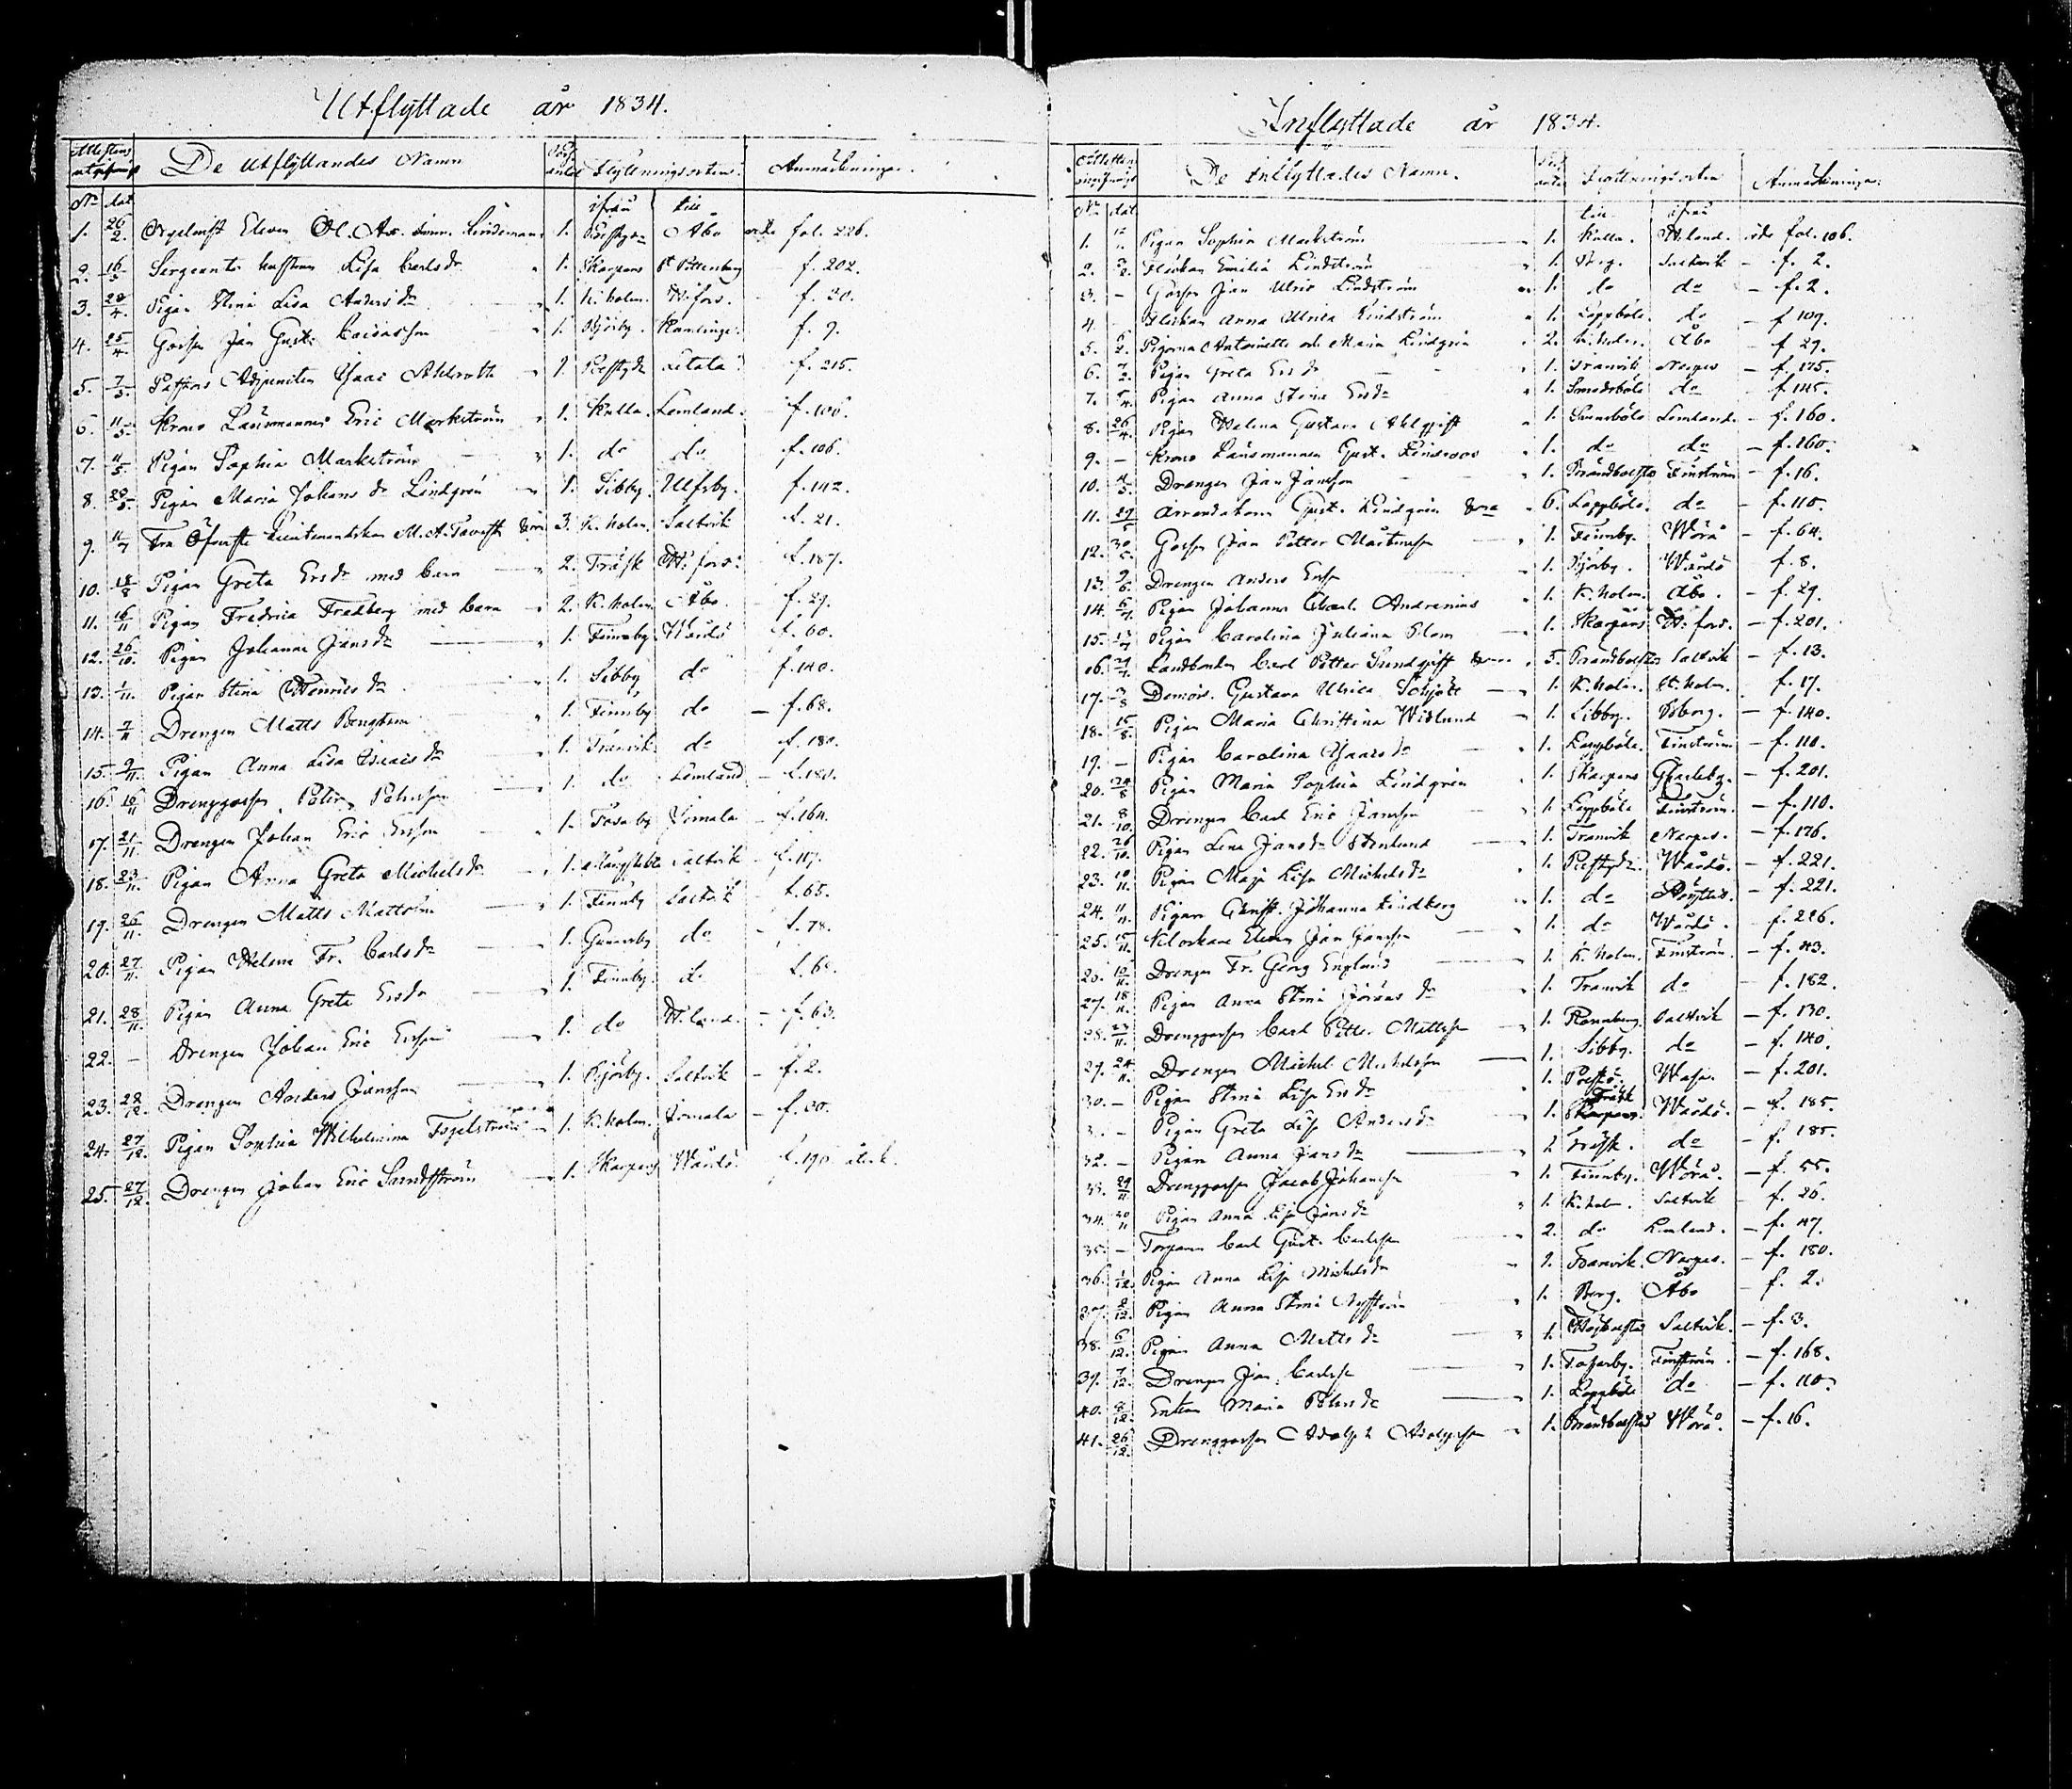 Utflyttade år 1834.
De utflyttandes Namn Flyttningsorten. Anmärkningar.
No dat. ifrån till
1. 26/2. Eleven Lindeman 1. Åbo vide fol. 226.
2. 16/3. Sergeants hustrun Lisa Carlsdr 1. Skarpans St Pettersburg f. 202.
3. 28/4. Pigan Stina Lisa Andersdr 1. K.holm. H:fors. f. 30.
4. 25/4. Gossen Jan Gust. 1. Björby. f. 9.
5. 7/5. Pastors Adjuncten Isaac Ahlroth 1. Prestgdn Letala. f. 215.
6. 11/5. Krono Länsmannen Eric Markström 1. Kulla. Lemland. f. 106.
7. 11/5. Pigan Sophia Markström 1. do do f. 106.
8. 28/5. Pigan Maria Johansdr Lindgrén 1. Sibby. Ulfsby. f. 142.
9. 11/7 Fru Öfverste Lieutenantskan M. A. Tavast 3. K.holm. Saltvik f. 21.
10. 18/8 Pigan Greta Ersdr med barn 2. Träsk H:fors. f. 187.
11. 16/11 Pigan Fredrica Fredberg med barn 2. K.holm. Åbo. f. 29.
12. 26/10. Pigan Johanna Jansdr 1. Finnby. Wårdö f. 60.
13. 1/11. Pigan Stina Henricsdr 1. Sibby do f. 140.
14. 7/11 Drengen Matts 1. Finnby do – f. 68.
15. 9/11. Pigan Anna Lisa Isaacsdr 1. Tranvik. do f. 180.
16. 16/11 Drenggossen Petter Petersson 1. do Lemland – f. 180.
17. 21/11. Drengen Johan Eric Ersson 1. Tosarby Jomala – f. 164.
18. 23/11. Pigan Anna Greta Michelsdr 1. Mångstekta Saltvik – f. 117.
19. 26/11. Drengen Matts Mattsson 1. Finnby Saltvik – f. 65.
20. 27/11. Pigan Helena Fr. Carlsdr 1. Gunnarsby do – f. 78.
21. 28/11. Pigan Anna Greta Ersdr 1. Finnby. do f. 62.
22. – Drengen Johan Eric Ersson 1. do H.land. – f. 63.
23. 28/12. Drengen Anders Jansson 1. Björby. Saltvik – f. 2.
24. 27/12. Pigan Sophia Wilhelmina Fogelström 1. K.holm. Jomala – f. 30.
25. 27/12. Drengen Johan Eric Sundström 1. Skarpans Wårdö f. 190.
Inflyttade år 1834.
De Inflyttades Namn. Flyttningsorten Anmärkningar.
No dat. till ifrån
1. 12/1. Pigan Sophia Markström 1. Kulla. H.land. vide fol. 106.
2. Flickan Emilia Lindström 1. Berg. Saltvik – f. 2.
3. – Gossen Jan Ulric Lindström 1. do do – f. 2.
4. – Flickan Anna Ulrica Lindström 1. Löppböle. do – f. 109.
5. Pigorna Antoinette och Maria Lindgrén 2. K.holm. Åbo – f. 29.
6. Pigan Greta Ersdr 1. Tranvik Nerpes – f. 175.
7. Pigan Anna Stina Ersdr 1. Smedsböle do – f. 145.
8. 26/4. Pigan Helena Gustava Ahlqvist 1. Sunnsböle Lemland – f. 160.
9. – Krono Länsmannen Gust. Lindroos 1. do do – f. 160.
10. Drengen Jan Jansson 1. Brändbolstad Finström – f. 16.
11. Arrendatorn Gust. Lindgrén 6. Löppböle. do – f. 110.
12. Gossen Jan Petter Mårtensson 1. Finnby. Wörå – f. 64.
13. 9/6. Drengen Anders Ersson 1. Björby. Wårdö f. 8.
14. Pigan Johanna Charl. Andrenius 1. K.holm. Åbo. – f. 29.
15. Pigan Carolina Juliana Blom 1. Skarpans H:fors. – f. 201.
16. Landbonden Carl Petter Sundqvist 5. Brändbolstad Saltvik – f. 13.
17. Demois. Gustava Ulrica 1. K.holm. St.holm. f. 17.
18. 15/8. Pigan Maria Christina Widlund 1. Sibby. – f. 140.
19. – Pigan Carolina Isaacsdr 1. Löppböle. Finström – f. 110.
20. 24/8 Pigan Maria Sophia Lindgrén 1. Skarpans G:Carleby. – f. 201.
21. 8/10. Drengen Carl Eric Jansson 1. Löppböle Finström. – f. 110.
22. 26/10. Pigan Lena Jansdr Stenlund 1. Tranvik Nerpes. – f. 176.
23. 10/11. Pigan Maja Lisa Michelsdr 1. Prestgdn. Wårdö. – f. 221.
24. 11/11. Pigan Christ. Johanna Lindberg 1. do – f. 221.
25. 15/11. Klockare Eleven Jan Jansson 1. do Wårdö. – f. 226.
26. Drengen Fr. Georg Englund 1. K.holm. Finström. – f. 43.
27. 18/11. Pigan Anna Stina Göransdr 1. Tranvik do – f. 182.
28. 23/11. Drenggossen Carl Petter Mattsson 1. Rannberg. Saltvik – f. 130.
29. 24/11. Drengen Michel Michelsson 1. Sibby. do – f. 140.
30. – Pigan Stina Lisa Ersdr 1. Prestö. Wasa. – f. 201.
– Pigan Greta Lisa Andersdr 1. Träsk Wårdö. – f. 185.
32. – Pigan Anna Jansdr 1 Träsk. do – f. 185.
33. 29/11. Drenggossen Jacob Johansson 1. Finnby. Wörå. – f. 55.
34. 30/11 Pigan Anna Lisa Jansdr 1. K.holm. Saltvik – f. 26.
35. – Torparen Carl Gust. Carlsson 2. do Lemland. – f. 47.
36. 1/12. Pigan Anna Lisa Michelsdr 1. Tranvik. Nerpes. – f. 180.
37. 2/12. Pigan Anna Stina Nyström 1. Berg. Åbo – f. 2.
38. 6/12. Pigan Anna Mattsdr 1. Saltvik. – f. 3.
39. 7/12. Drengen Jan Carlsson 1. Tosarby. Finström. – f. 168.
40. 8/12. Enkan Maria Petersdr 1. Löppböle do – f. 110.
41. 26/12. Drenggossen Adolph Adolphsson 1. Brändbolstad Wörå. – f. 16.